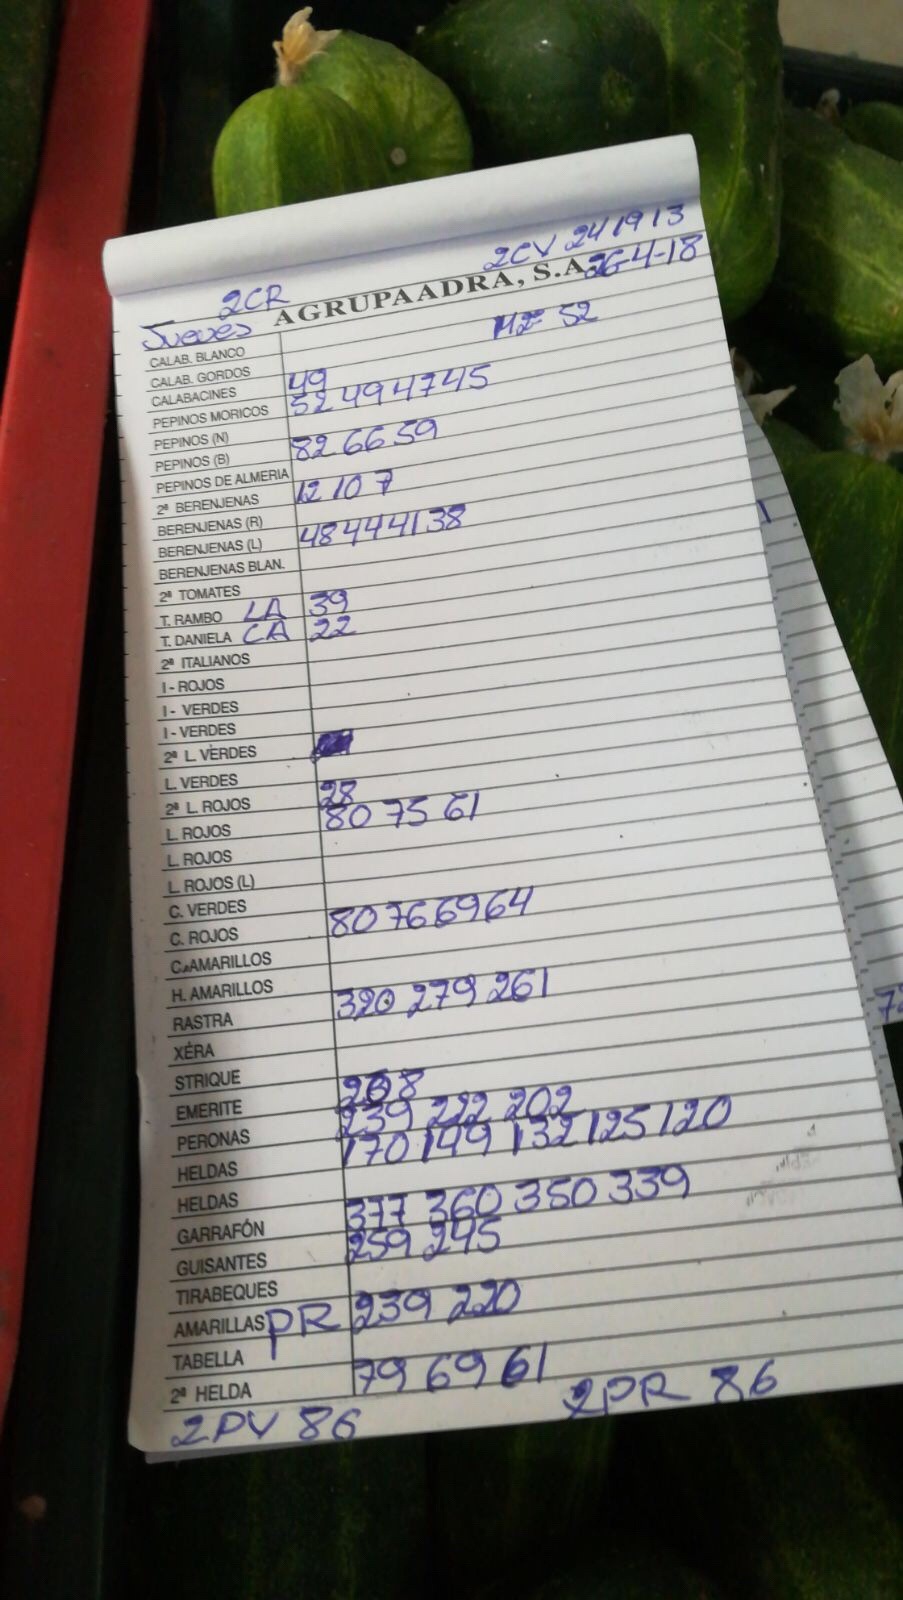 2CV 24 19 13
2CR
AGRUPAADRA, S.A.
Jueves 26-4-18
CALAB. BLANCO M2= 52
CALAB. GORDOS
CALABACINES 49
PEPINOS MORICOS 52 49 47 45
PEPINOS (N)
PEPINOS (B) 82 66 59
PEPINOS DE ALMERIA
2ª BERENJENAS 12 10 7
BERENJENAS (R)
BERENJENAS (L) 48 44 41 38
BERENJENAS BLAN.
2ª TOMATES
T. RAMBO LA 39
T. DANIELA CA 22
2ª ITALIANOS
I - ROJOS
I - VERDES
I - VERDES
2ª L. VERDES
L. VERDES
2ª L. ROJOS 28
L. ROJOS 80 75 61
L. ROJOS
L. ROJOS (L)
C. VERDES
C. ROJOS 80 76 69 64
C. AMARILLOS
H. AMARILLOS
RASTRA 320 279 261
XÉRA
STRIQUE
EMERITE 208
PERONAS 239 222 202
HELDAS 170 149 132 125 120
HELDAS
GARRAFÓN 377 360 350 339
GUISANTES 259 245
TIRABEQUES
AMARILLAS PR 239 220
TABELLA
2ª HELDA 79 69 61
2PV 86 2PR 86